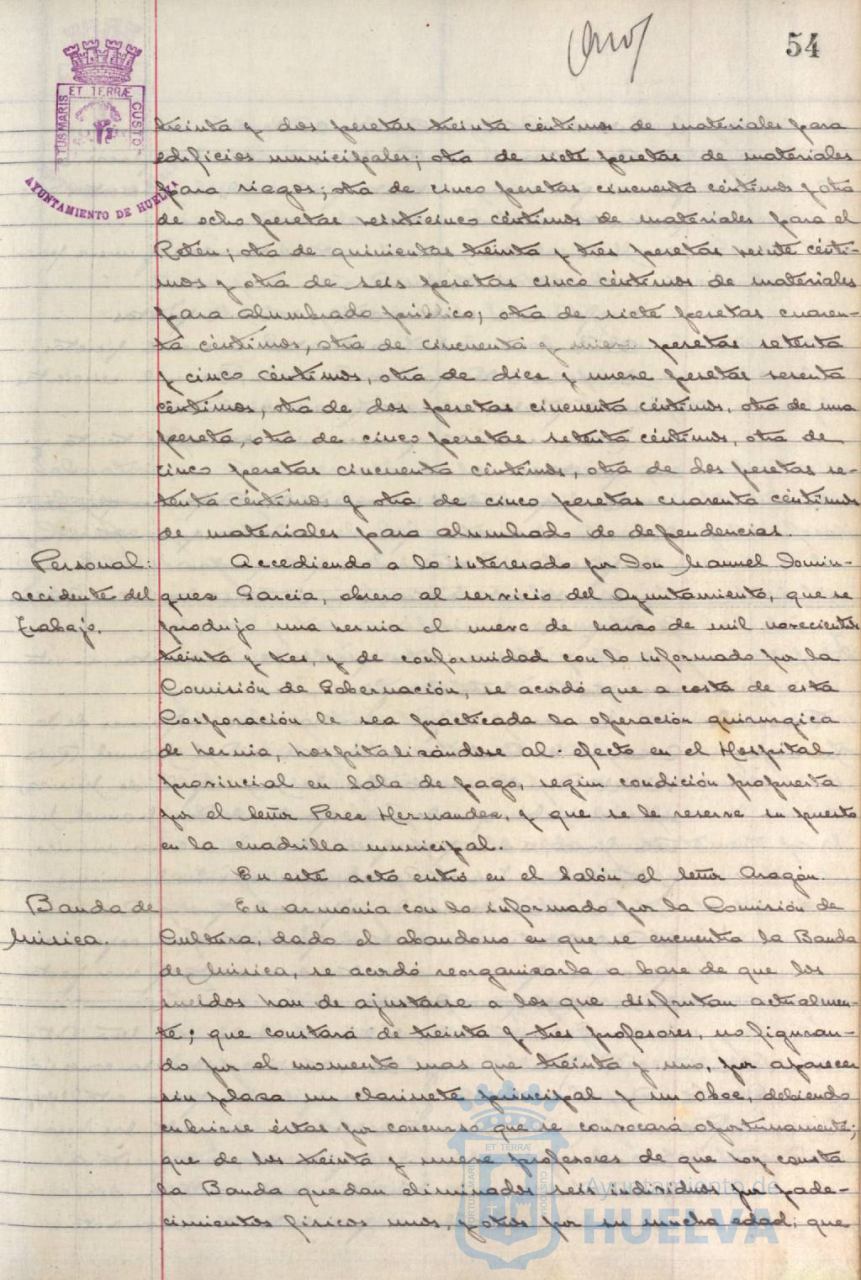 54
ET TERRÆ
PORTUS MARIS
CUSTODIA
AYUNTAMIENTO DE HUELVA
treinta y dos pesetas treinta céntimos de materiales para
edificios municipales; otra de siete pesetas de materiales
para riegos; otra de cinco pesetas cincuenta céntimos y otra
de ocho pesetas veinticinco céntimos de materiales para el
; otra de quinientas treinta y tres pesetas veinte cénti-
mos y otra de seis pesetas cinco céntimos de materiales
para alumbrado público; otra de siete pesetas cuaren-
ta céntimos, otra de cincuenta y nueve pesetas setenta
y cinco céntimos, otra de diez y nueve pesetas sesenta
céntimos, otra de dos pesetas cincuenta céntimos, otra de una
peseta, otra de cinco pesetas setenta céntimos, otra de
cinco pesetas cincuenta céntimos, otra de dos pesetas se-
tenta céntimos y otra de cinco pesetas cuarenta céntimos
de materiales para alumbrado de dependencias.
Personal:
accidente del
trabajo.
Accediendo a lo interesado por Don Manuel Domin-
guez García, obrero al servicio del Ayuntamiento, que se
produjo una hernia el nueve de marzo de mil novecientos
treinta y tres, y de conformidad con lo informado por la
Comisión de Gobernación, se acordó que a costa de esta
Corporación le sea practicada la operación quirurgica
de hernia, hospitalizándose al efecto en el Hospital
Provincial en Sala de pago, según condición propuesta
por el Señor Perez Hernandez, y que se le reserve su puesto
en la cuadrilla municipal.
En este acto entró en el Salón el Señor Aragón.
Banda de
Música.
En armonia con lo informado por la Comisión de
Cultura, dado el abandono en que se encuentra la Banda
de Música, se acordó reorganizarla a base de que los
sueldos han de ajustarse a los que disfrutan actualmen-
te; que constará de treinta y tres profesores, no figuran-
do por el momento mas que treinta y uno, por aparecer
sin plaza un clarinete principal y un oboe, debiendo
cubrirse éstas por concurso que se convocará oportunamente;
que de los treinta y nueve profesores de que hoy consta
la Banda quedan eliminados seis individuos por pade-
cimientos fisicos unos, y otros por su mucha edad; que
Ayuntamiento de
HUELVA